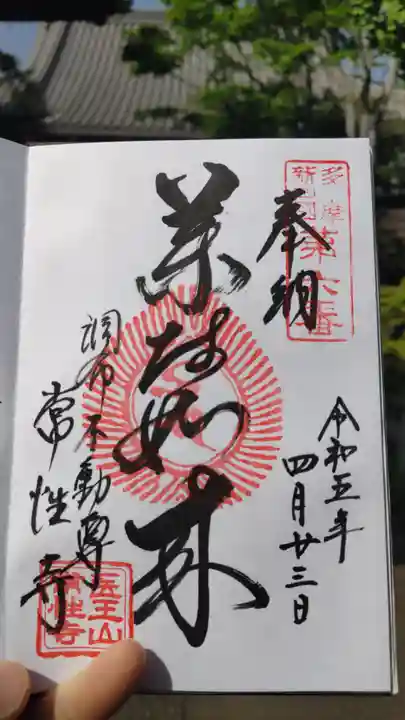 奉納
多摩
新四国
第六番
令和五年
四月廿三日
薬師如来
調布不動尊
常性寺
医王山
常性寺